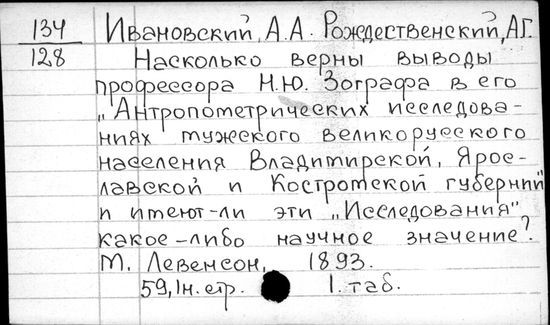 134 Ивановский, А.А. Рождественский, А.Г.
128 Насколько верны выводы
профессора Н.Ю. Зографа в его
„Антропометрических исследова-
ниях мужского великорусского
населения Владимирской, Ярос-
лавской и Костромской губерний"
и имеют-ли эти „Исследования"
какое-либо научное значение?
М. Левенсон, 1893.
59, 1н. стр. 1. таб.